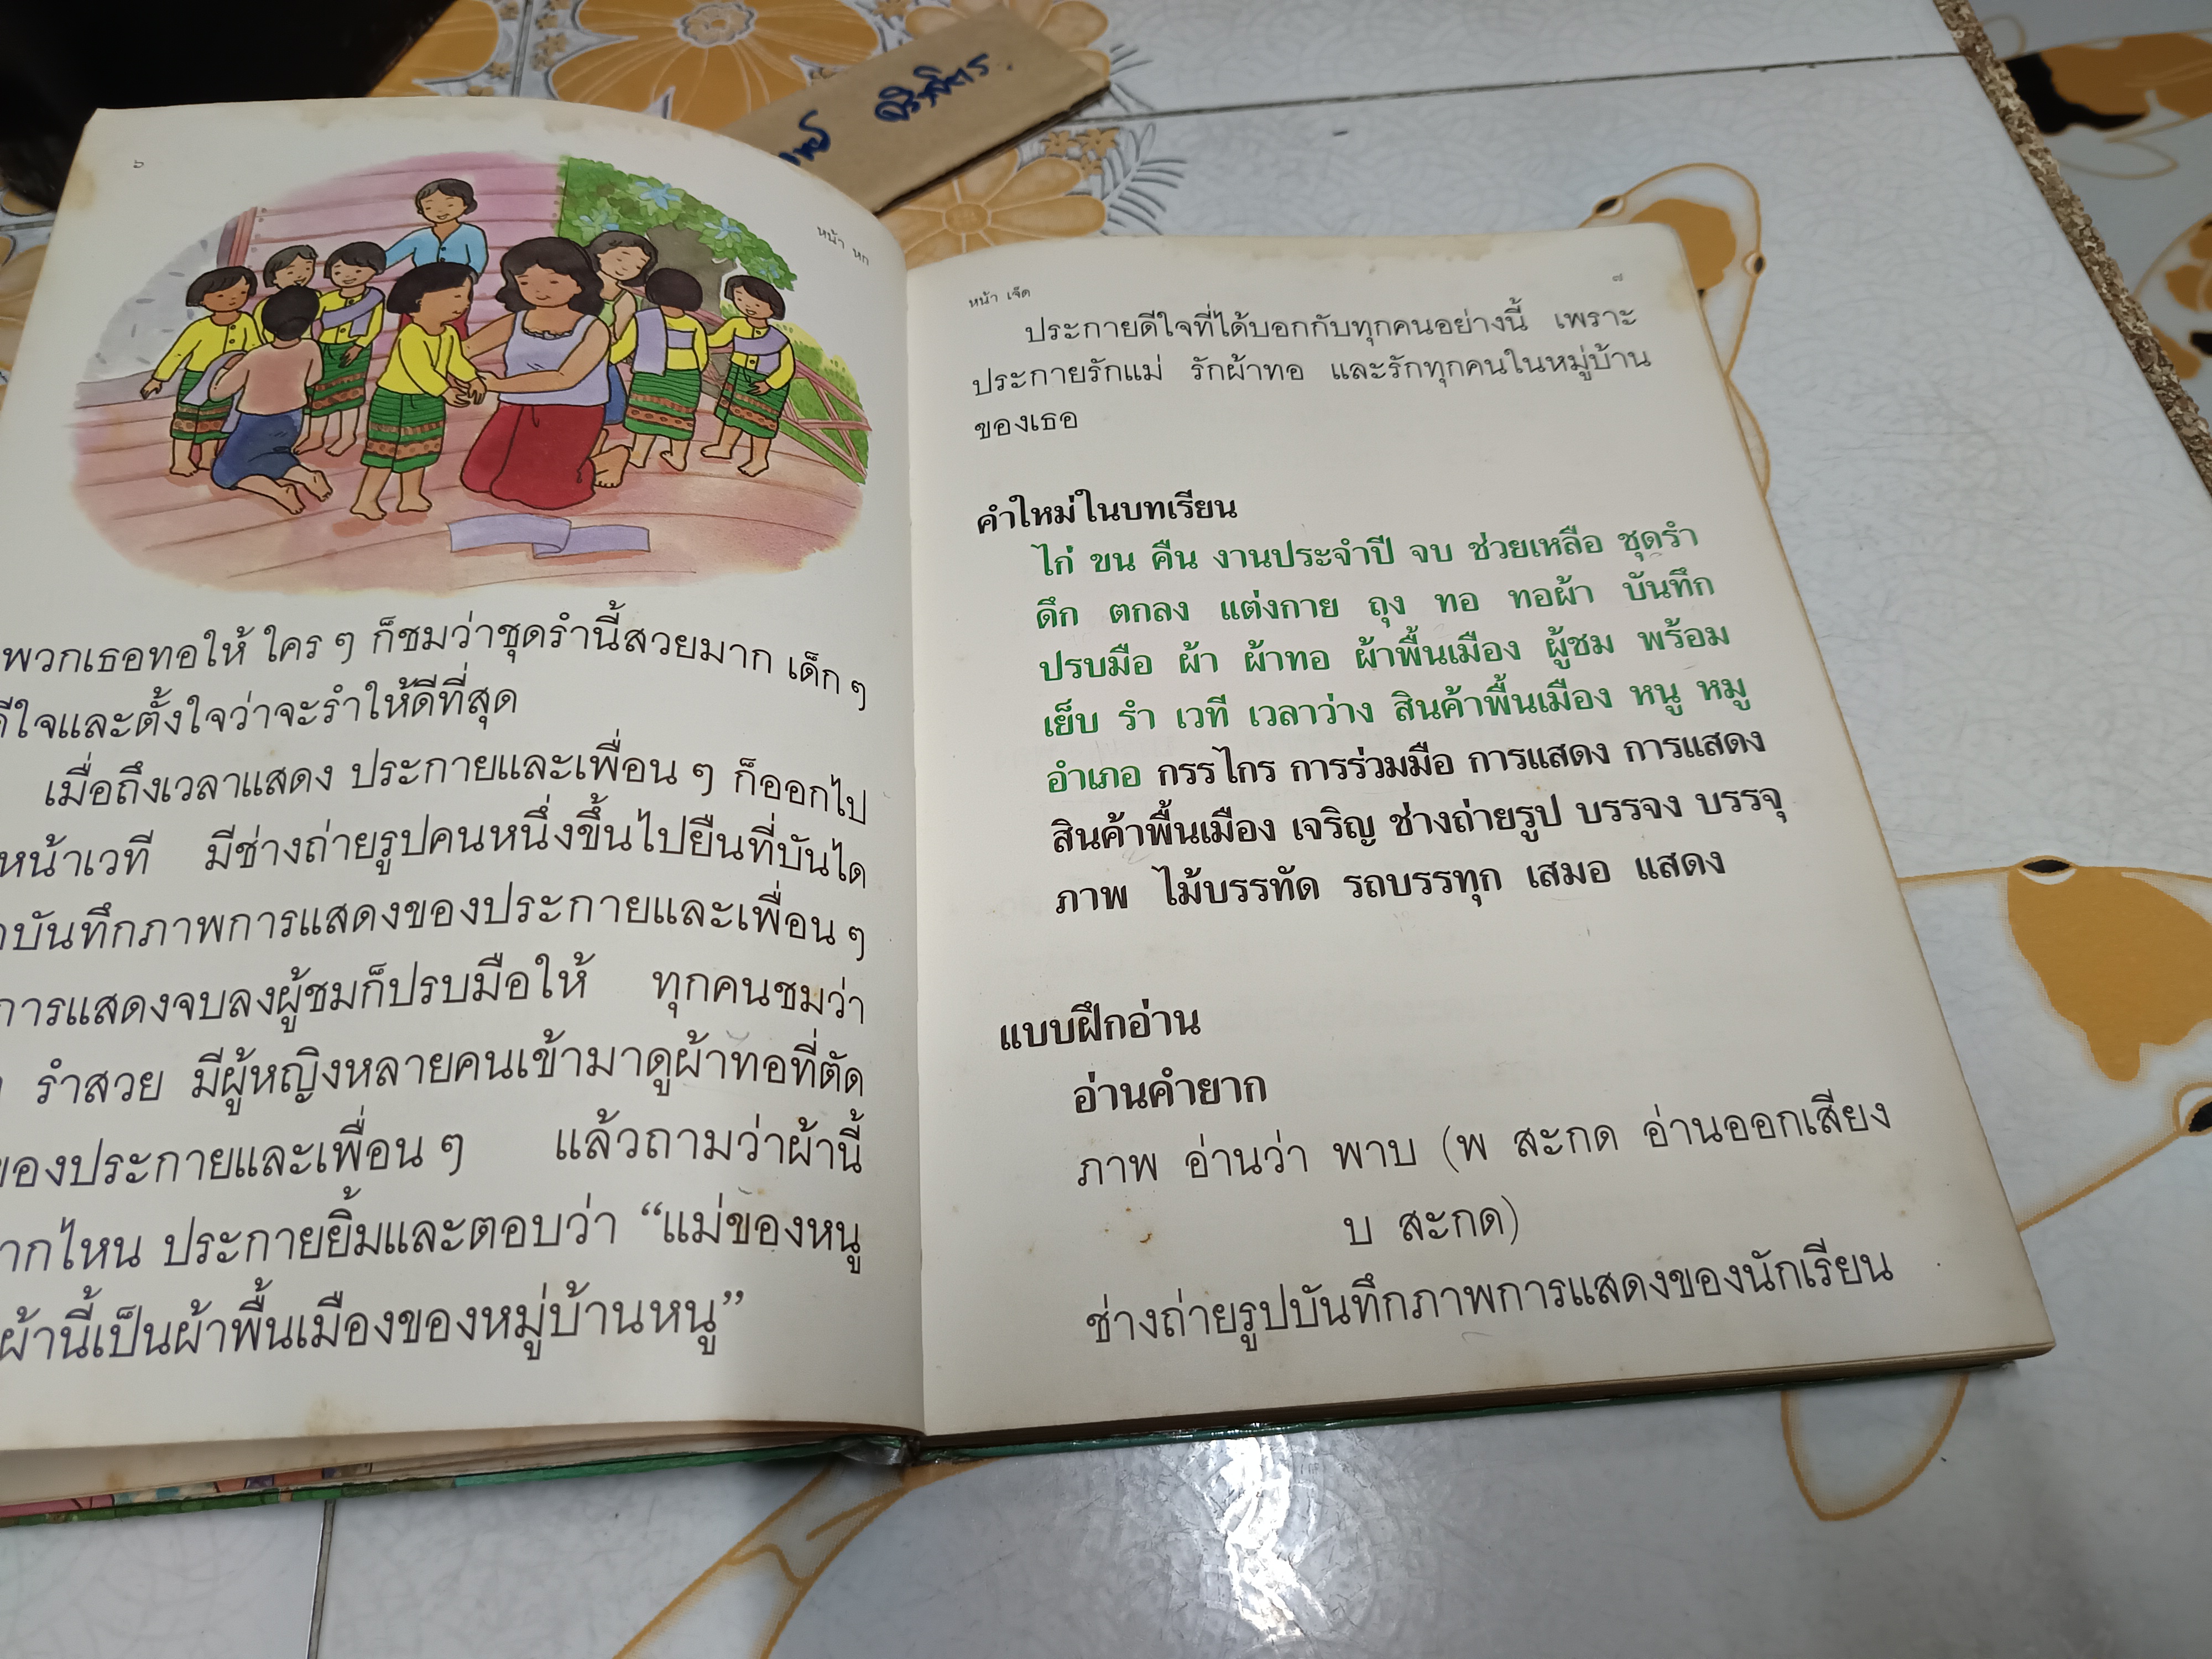 ๖
หน้า หก
พวกเธอทอให้ ใคร ๆ ก็ชมว่าชุดรำนี้สวยมาก เด็ก ๆ
ดีใจและตั้งใจว่าจะรำให้ดีที่สุด
เมื่อถึงเวลาแสดง ประกายและเพื่อน ๆ ก็ออกไป
หน้าเวที มีช่างถ่ายรูปคนหนึ่งขึ้นไปยืนที่บันได
บันทึกภาพการแสดงของประกายและเพื่อน ๆ
การแสดงจบลงผู้ชมก็ปรบมือให้ ทุกคนชมว่า
รำสวย มีผู้หญิงหลายคนเข้ามาดูผ้าทอที่ตัด
ของประกายและเพื่อน ๆ แล้วถามว่าผ้านี้
ากไหน ประกายยิ้มและตอบว่า “แม่ของหนู
ผ้านี้เป็นผ้าพื้นเมืองของหมู่บ้านหนู”
หน้า เจ็ด
๗
ประกายดีใจที่ได้บอกกับทุกคนอย่างนี้ เพราะ
ประกายรักแม่ รักผ้าทอ และรักทุกคนในหมู่บ้าน
ของเธอ
คำใหม่ในบทเรียน
ไก่ ขน คืน งานประจำปี จบ ช่วยเหลือ ชุดรำ
ดึก ตกลง แต่งกาย ถุง ทอ ทอผ้า บันทึก
ปรบมือ ผ้า ผ้าทอ ผ้าพื้นเมือง ผู้ชม พร้อม
เย็บ รำ เวที เวลาว่าง สินค้าพื้นเมือง หนู หมู
อำเภอ กรรไกร การร่วมมือ การแสดง การแสดง
สินค้าพื้นเมือง เจริญ ช่างถ่ายรูป บรรจง บรรจุ
ภาพ ไม้บรรทัด รถบรรทุก เสมอ แสดง
แบบฝึกอ่าน
อ่านคำยาก
ภาพ อ่านว่า พาบ (พ สะกด อ่านออกเสียง
บ สะกด)
ช่างถ่ายรูปบันทึกภาพการแสดงของนักเรียน